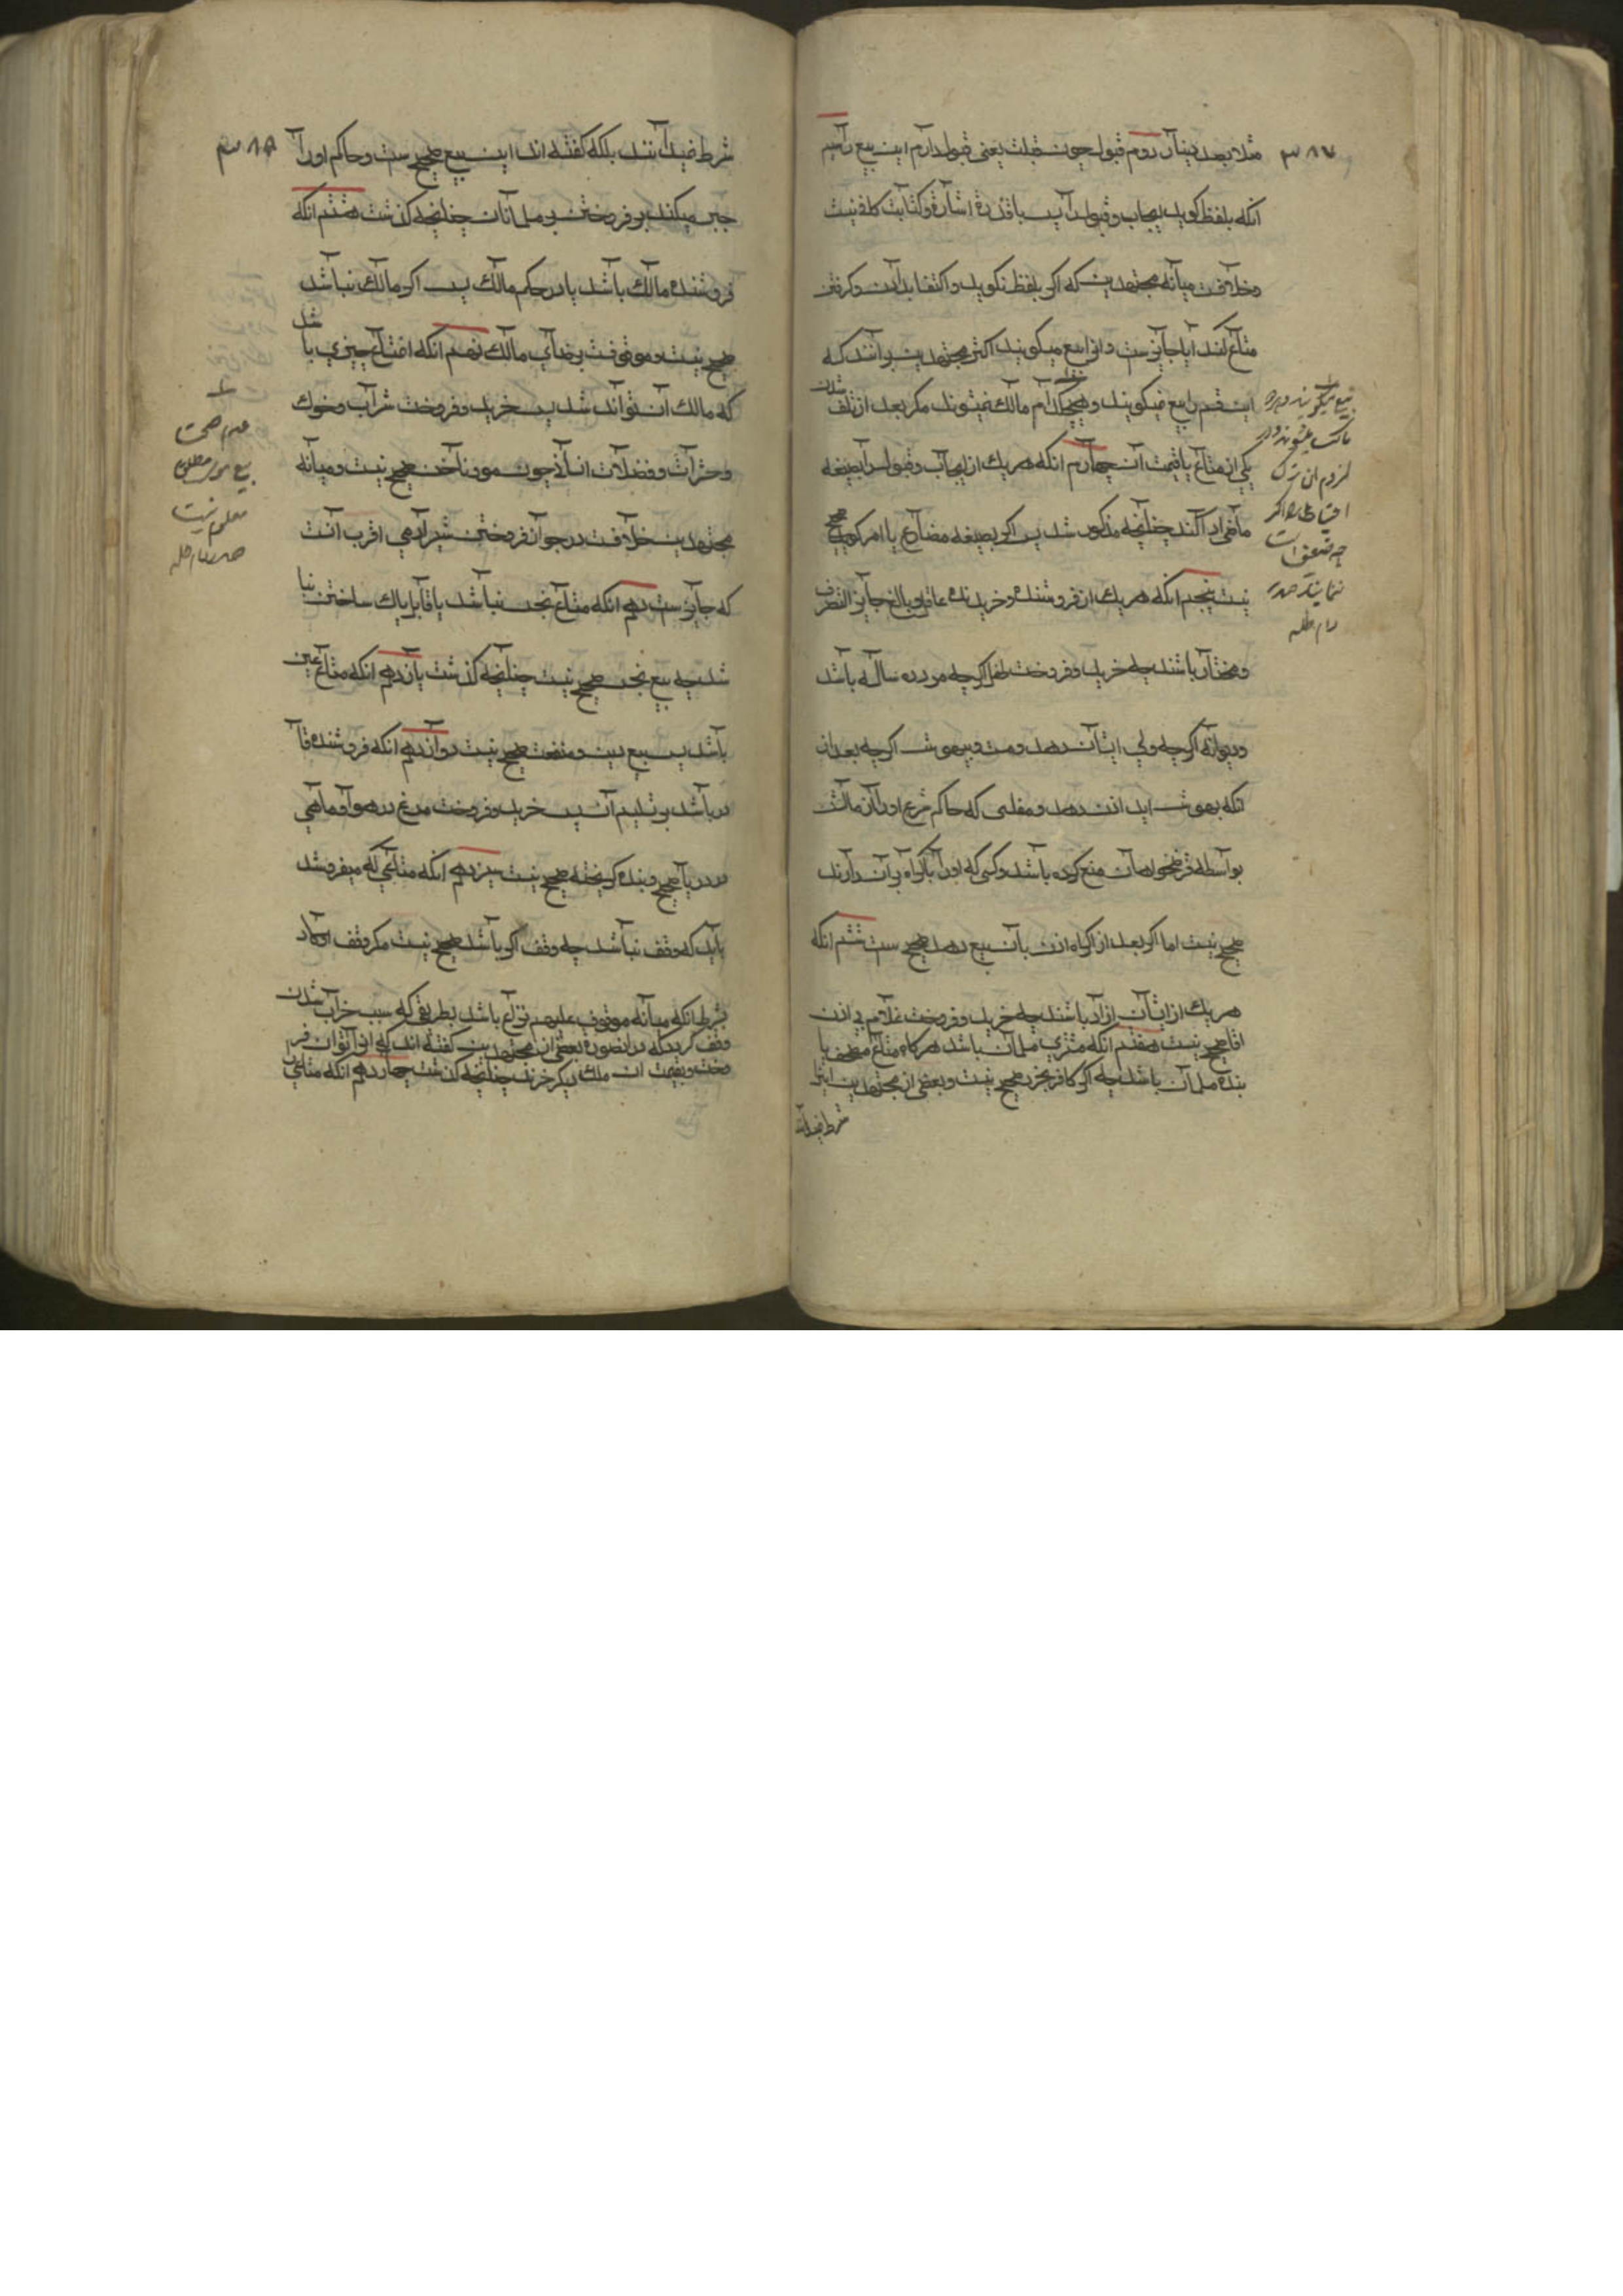 ۳۸۷
مثلا بصد دینار دوم قبول چون قبلت یعنی قبول دارم این بیع را سیم
انکه بلفظ کوید ایجاب وقبول را پس با قدرة اشارة وکتابت کافی نیست
وخلافست میانه مجتهدین که اکر بلفظ نکوید واکتفا بدادن وکرفتن
متاع کند ایا جایزست وانرا بیع میکویند اکثر مجتهدین برانند که
این قسم را بیع نمیکویند وهیچ کدام مالک نمیشوند مکر بعد از تلف شدن
یکی از متاع یا قیمت آن چهارم انکه هر یک از ایجاب وقبول را بصیغه
ماضی ادا کنند چنانچه مذکور شد پس اکر بصیغه مضارع یا امر کوید صحیح
نیست پنجم انکه هر یک از فروشنده وخریدنده عاقل وبالغ جایز التصرف
ومختار باشند چه خرید وفروخت طفل اکرچه مرد ده ساله باشد
ودیوانه اکرچه ولی ایشان اذن دهد ومست وبیهوش اکرچه بعد از
انکه بهوش اید اذن دهد ومفلسی که حاکم شرع اورا از مالش
بواسطه قرضخواهان منع کرده باشد وکسی که اورا باکراه بران دارند
صحیح نیست اما اکر بعد از اکراه اذن بآن بیع دهد صحیح ست ششم انکه
هر یک از ایشان ازاد باشند چه خرید وفروخت غلام بی اذن
اقا صحیح نیست هفتم انکه مشتری مسلمان باشد هرکاه متاع مصحف یا
بنده مسلمان باشد چه اکر کافر بخرد صحیح نیست وبعضی از مجتهدین اینرا
شرط نمیدانند
بیع میکویند
مالک میشوند
لزوم ان
احتیاط
ضعیف است
نمایند صدر
دام ظله
۳۸۸
شرط نمیدانند بلکه کفته اند این بیع صحیح ست وحاکم اورا
جبر میکند بر فروختن بر مسلمانان چنانچه کذشت هشتم انکه
فروشنده مالک باشد یا در حکم مالک پس اکر مالک نباشد
صحیح نیست وموقوفست برضای مالک نهم انکه متاع چیزی باشد
که مالک آن تواند شد پس خرید وفروخت شراب وخوک
وحشرات وفضلات انسان چون مو وناخن صحیح نیست ومیانه
مجتهدین خلافست در جواز فروختن شیر ادمی اقرب آنست
که جایزست دهم انکه متاع نجس نباشد یا قابل پاک ساختن باشد
چه بیع نجس صحیح نیست چنانچه کذشت یازدهم انکه متاع عین
باشد پس بیع دین ومنفعت صحیح نیست دوازدهم انکه فروشنده قا
در باشد بر تسلیم آن پس خرید وفروخت مرغ در هوا وماهی
در دریا صحیح وبنده کریخته صحیح نیست سیزدهم انکه متاعی که میفروشد
باید که وقف نباشد چه وقف اکر باشد صحیح نیست مکر وقف اولاد
بشرط انکه میانه موقوف علیهم نزاع باشد بطریقی که سبب خراب شدن
وقف کردد که درانصورة بعضی از مجتهدین کفته اند که انرا توان فر
وخت وبقیمت ان ملک دیکر خرند چنانچه کذشت چهاردهم انکه متاعی
عدم صحت
بیع مطلق
معلوم نیست
صدر دام ظله